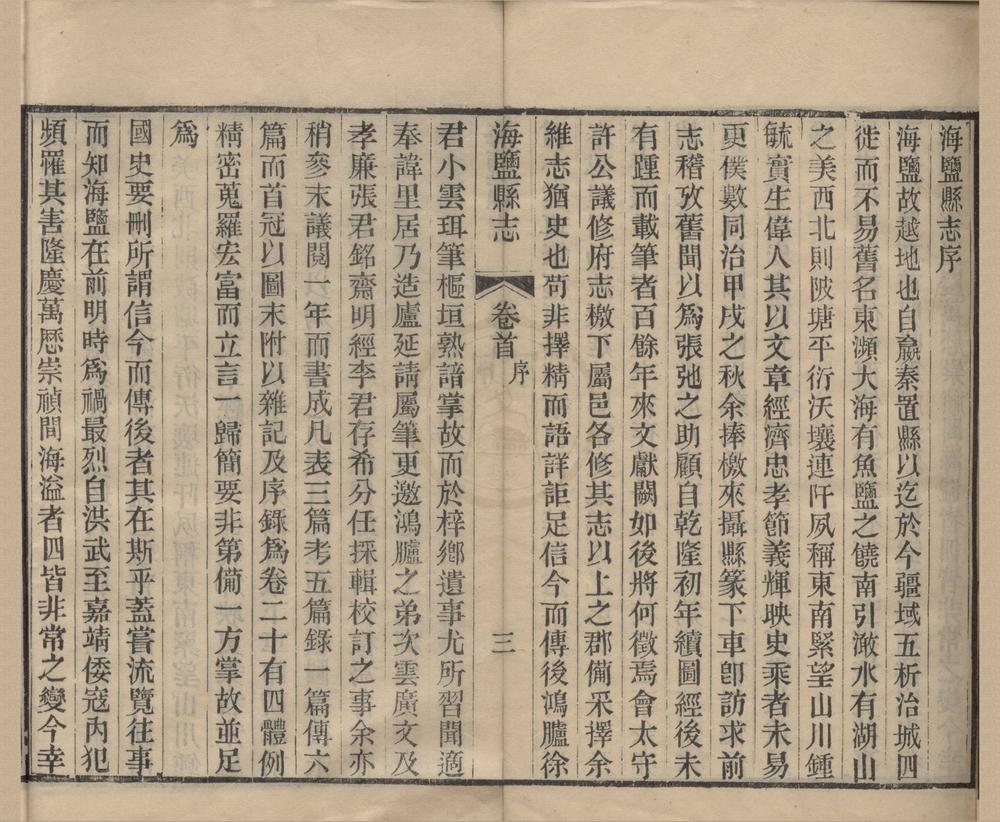 海鹽縣志序
海鹽故越地也自嬴秦置縣以迄於今疆域五析治城四
徙而不易舊名東瀕大海有魚鹽之饒南引澉水有湖山
之美西北則陂塘平衍沃壤連阡夙稱東南緊望山川鍾
毓實生偉人其以文章經濟忠孝節義輝映史乘者未易
更僕數同治甲戌之秋余捧檄來攝縣篆下車卽訪求前
志稽攷舊聞以爲張弛之助顧自乾隆初年續圖經後未
有踵而載筆者百餘年來文獻闕如後將何徵焉會太守
許公議修府志檄下屬邑各修其志以上之郡備采擇余
維志猶史也苟非擇精而語詳詎足信今而傳後鴻臚徐
海鹽縣志
卷首
序
三
君小雲珥筆樞垣熟諳掌故而於梓鄉遺事尤所習聞適
奉諱里居乃造廬延請屬筆更邀鴻臚之弟次雲廣文及
孝廉張君銘齋明經李君存希分任採輯校訂之事余亦
稍參末議閱一年而書成凡表三篇考五篇錄一篇傳六
篇而首冠以圖末附以雜記及序錄爲卷二十有四體例
精密蒐羅宏富而立言一歸簡要非第備一方掌故並足
爲
國史要刪所謂信今而傳後者其在斯乎蓋嘗流覽往事
而知海鹽在前明時爲禍最烈自洪武至嘉靖倭寇內犯
頻罹其害隆慶萬厯崇禎間海溢者四皆非常之變今幸